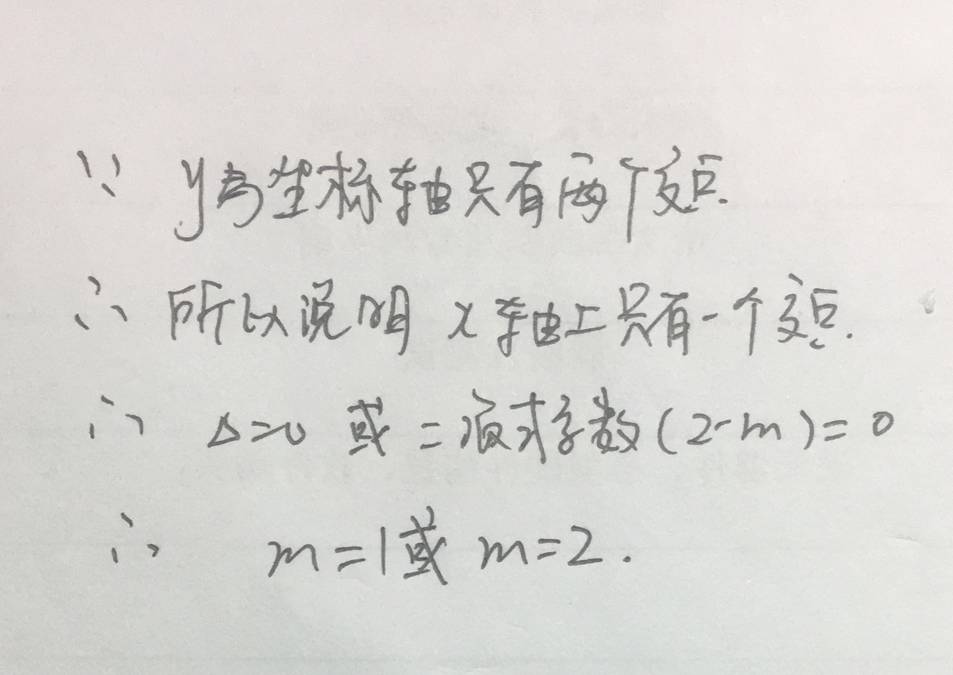 ∵ y与坐标轴只有两个交点.
∴ 所以说明 x轴上只有一个交点.
∴ Δ=0 或二次项系数(2-m)=0
∴ m=1或 m=2.